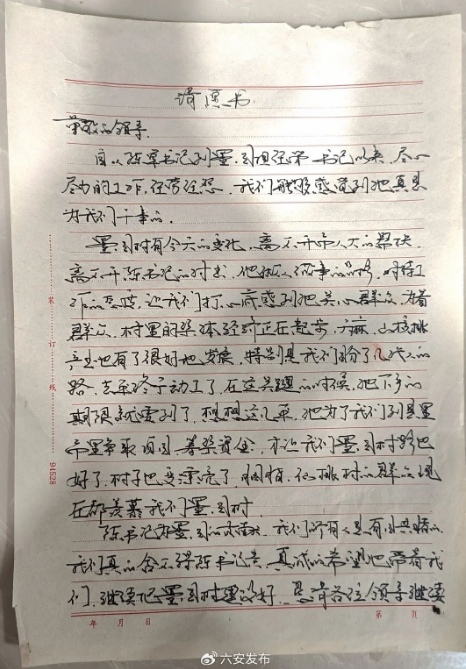 请愿书
尊敬的领导:
自从陈军书记到墨园担任第一书记以来,尽心
尽力的工作,任劳任怨,我们能够感觉到他真是
为我们干事的。
墨园村有今天的变化,离不开
离不开陈书记的付出,他
作的态度,让我们打心底感到他关心群众,为着
群众,村里的集体经济正在起步,
产业也有了很好地发展,特别是我们盼了几代人的
路,去年终于动工了,在这关键的时候,他下乡的
期限就要到了,想想这几年,他为了我们到县里
市里争取项目筹集资金,才让我们墨园村路也
好了,村子也变漂亮了,
在都羡慕我们墨园村
陈书记在墨园的,我们所有人是有目共睹的
我们真的舍不得陈书记走,真诚的希望他带着我
们,继续把墨园村建设好,恳请各位领导继续
装订线
94528
年 月 日
第 页
六安发布